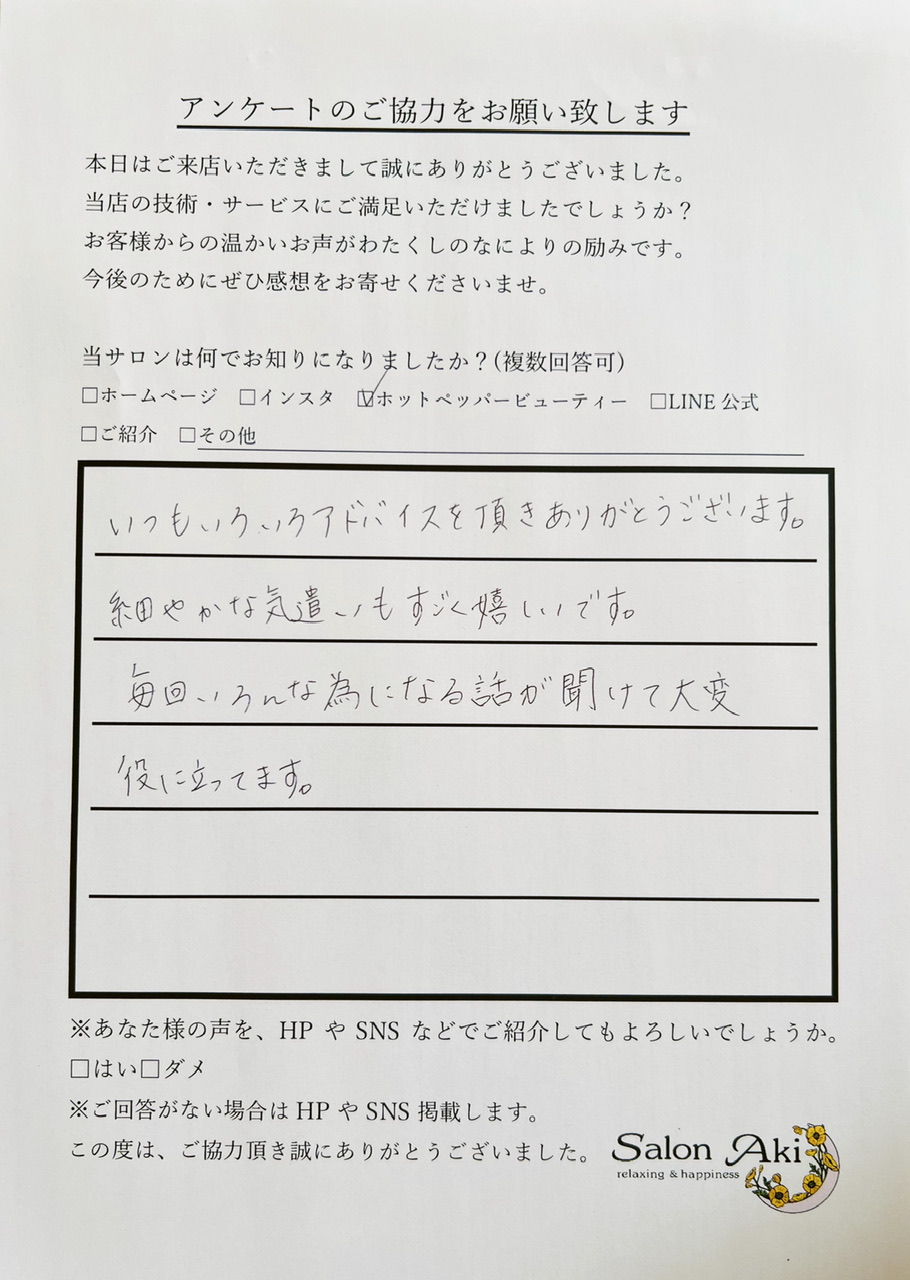 アンケートのご協力をお願い致します
本日はご来店いただきまして誠にありがとうございました。
当店の技術・サービスにご満足いただけましたでしょうか？
お客様からの温かいお声がわたくしのなによりの励みです。
今後のためにぜひ感想をお寄せくださいませ。
当サロンは何でお知りになりましたか？(複数回答可)
□ホームページ □インスタ ☑ホットペッパービューティー □LINE 公式
□ご紹介 □その他
いつもいろいろアドバイスを頂きありがとうございます。
細やかな気遣いもすごく嬉しいです。
毎回いろんな為になる話が聞けて大変
役に立ってます。
※あなた様の声を、HP や SNS などでご紹介してもよろしいでしょうか。
□はい□ダメ
※ご回答がない場合は HP や SNS 掲載します。
この度は、ご協力頂き誠にありがとうございました。
Salon Aki
relaxing & happiness